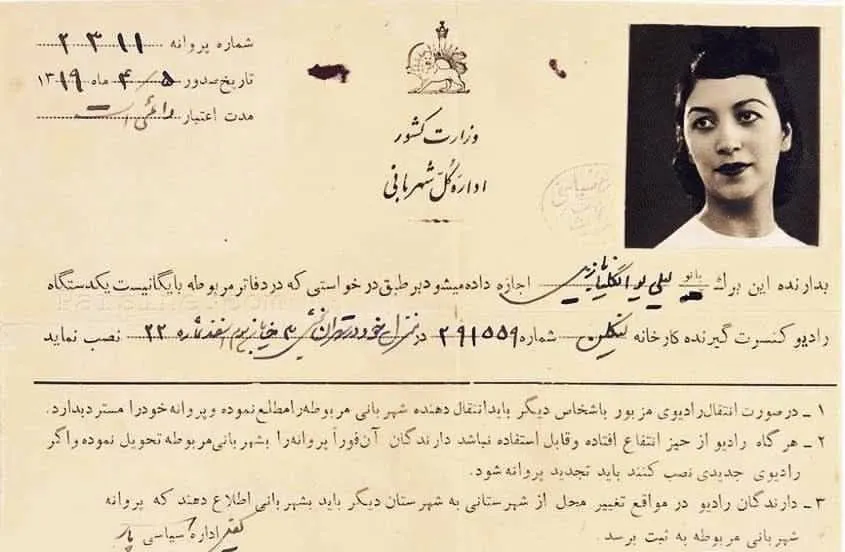 شماره پروانه ۲۳۱۱
تاریخ صدور ۵ / ۴ ماه ۱۳۱۹
مدت اعتبار دائمی است
وزارت کشور
اداره کل شهربانی
بدارنده این برگ بانو لیلی اجازه داده میشود بر طبق درخواستی که در دفاتر مربوطه بایگانیست یکدستگاه
رادیو کنسرت گیرنده کارخانه شماره ۲۹۱۵۵۹ در منزل خود در تهران ۲۲ نصب نماید
۱ ـ در صورت انتقال رادیوی مزبور باشخاص دیگر باید انتقال دهنده شهربانی مربوطه را مطلع نموده و پروانه خود را مسترد بدارد.
۲ ـ هر گاه رادیو از حیز انتفاع افتاده و قابل استفاده نباشد دارندگان آن فوراً پروانه را بشهربانی مربوطه تحویل نموده و اگر
رادیوی جدیدی نصب کنند باید تجدید پروانه شود.
۳ ـ دارندگان رادیو در مواقع تغییر محل از شهرستانی به شهرستان دیگر باید بشهربانی اطلاع دهند که پروانه
شهربانی مربوطه به ثبت برسد.
اداره سیاسی